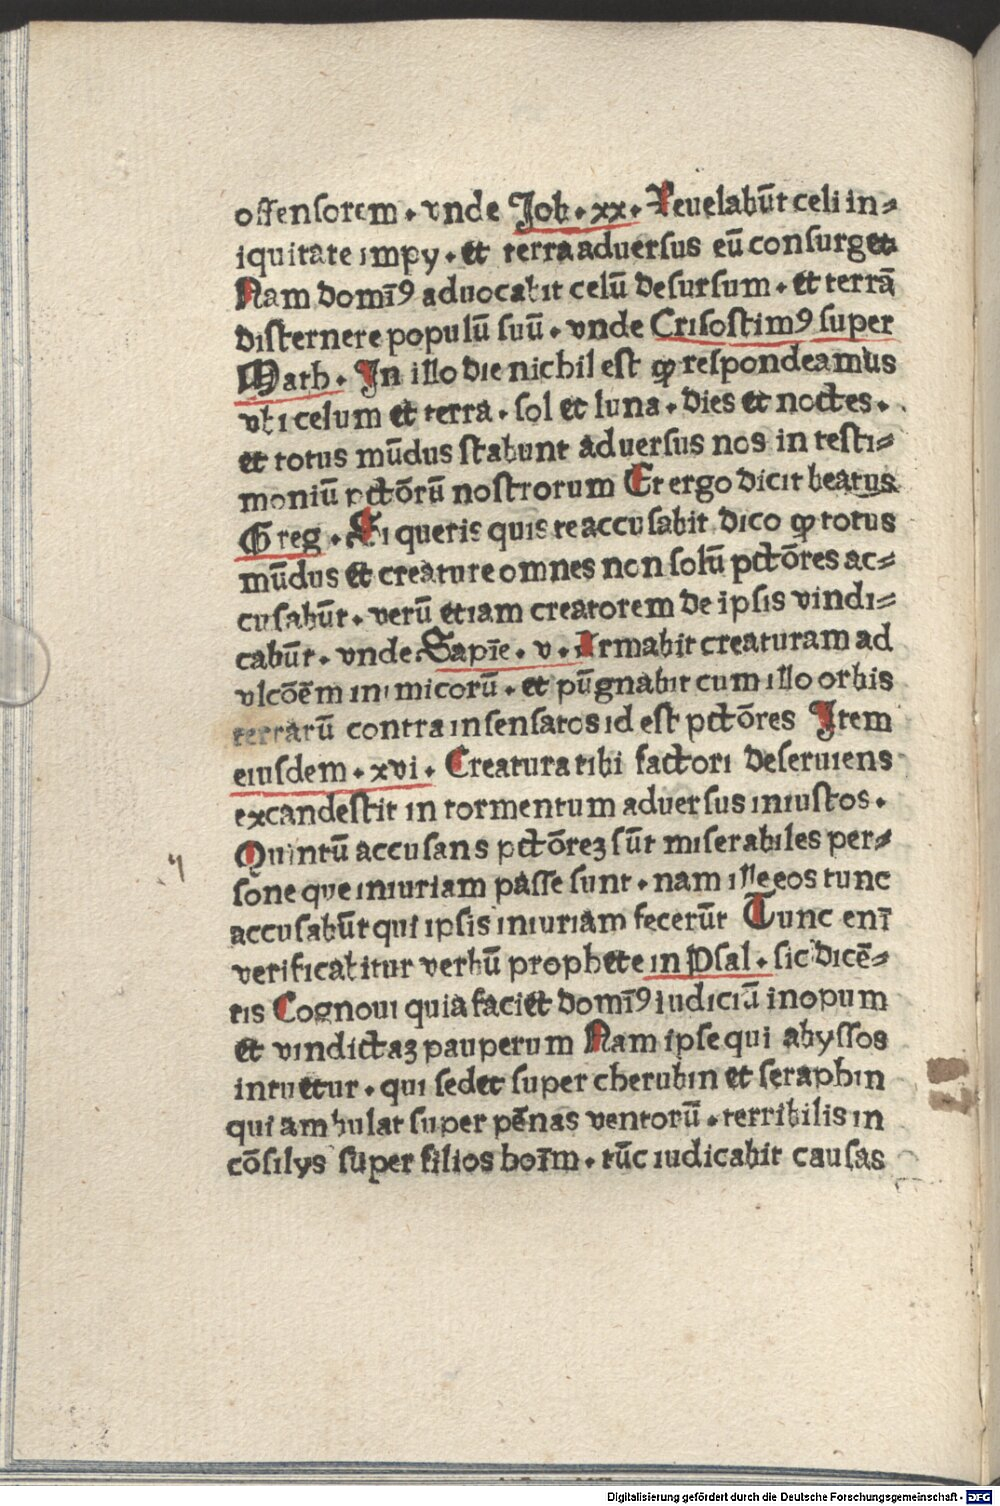 offensorem . vnde Job . xx . Reuelabūt celi in⸗
iquitate impy . et terra aduersus eū consurget
Nam domīꝰ aduocabit celū desursum . et terrā
disternere populū suū . vnde Crisostimꝰ super
Math . In illo die nichil est ꝙ respondeamus
vbi celum et terra . sol et luna . dies et noctes .
et totus mūdus stabunt aduersus nos in testi⸗
moniū pctōrū nostrorum Et ergo dicit beatus
Greg . Si queris quis te accusabit dico ꝙ totus
mūdus et creature omnes non solū pctōres ac⸗
cusabūt . verū etiam creatorem de ipsis vindi⸗
cabūt . vnde Sapīe . v . Armabit creaturam ad
vlcōēm inimicorū . et pūgnabit cum illo orbis
terrarū contra insensatos id est pctōres Item
eiusdem . xvi . Creatura tibi factori deseruiens
excandestit in tormentum aduersus iniustos .
Quintū accusans pctōreꝫ sūt miserabiles per⸗
sone que iniuriam passe sunt . nam ille eos tunc
accusabūt qui ipsis iniuriam fecerūt Tunc enī
verificabitur verbū prophete in Psal . sic dicē⸗
tis Cognoui quia faciet domīꝰ iudiciū inopum
et vindictaꝫ pauperum Nam ipse qui abyssos
intuetur . qui sedet super cherubin et seraphin
qui ambulat super pēnas ventorū . terribilis in
cōsilys super filios hoīm . tūc iudicabit causas
Digitalisierung gefördert durch die Deutsche Forschungsgemeinschaft - DFG